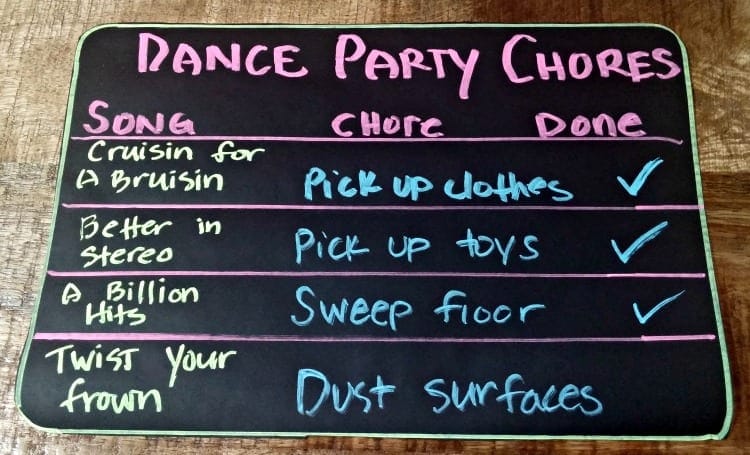 DANCE PARTY CHORES
SONG CHORE DONE
Cruisin for
A Bruisin
Pick up clothes ✓
Better in
Stereo
Pick up toys ✓
A Billion
Hits
Sweep floor ✓
Twist Your
frown
Dust surfaces